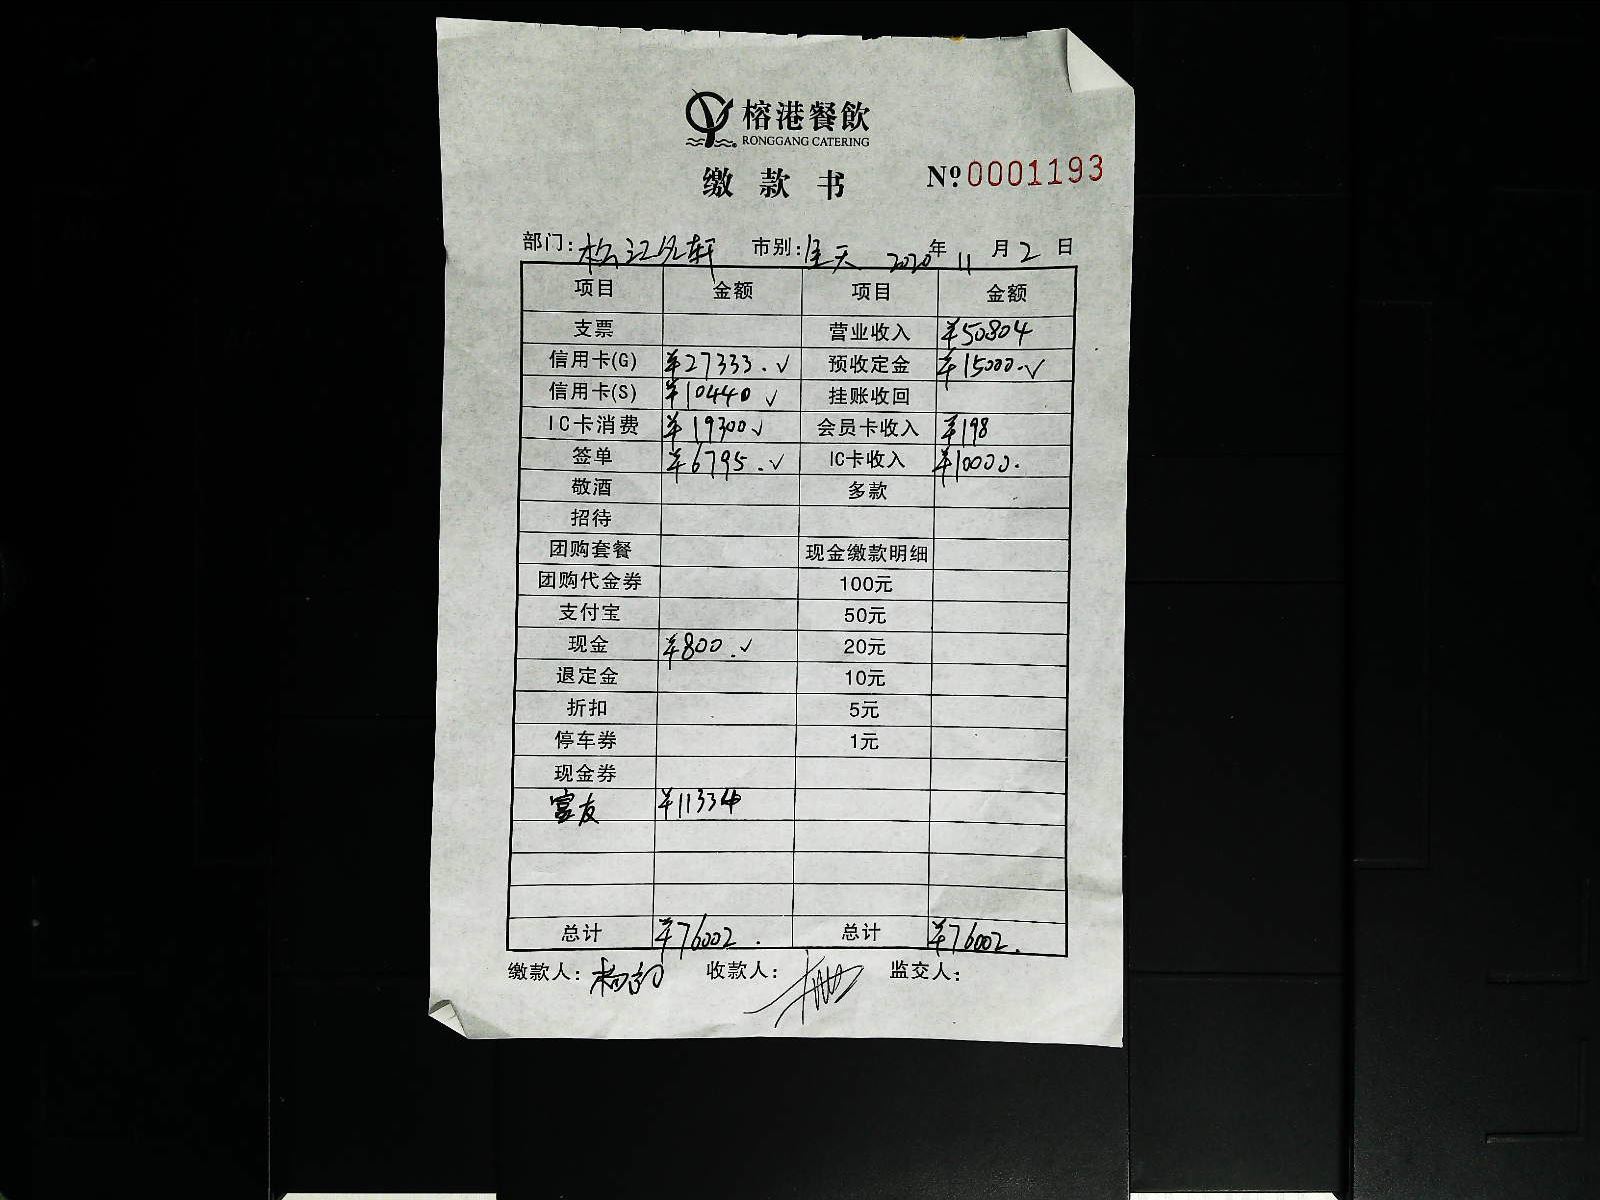 榕港餐飲
RONGGANG CATERING
缴款书 №0001193
部门: 松江 轩 市别: 全天 2020年 11月 2日
项目 金额 项目 金额
支票 营业收入 ¥50804
信用卡(G) ¥27333.✓ 预收定金 ¥15000.✓
信用卡(S) ¥10440 ✓ 挂账收回
IC卡消费 ¥19300✓ 会员卡收入 ¥198
签单 ¥6795.✓ IC卡收入 ¥10000.
敬酒 多款
招待
团购套餐 现金缴款明细
团购代金券 100元
支付宝 50元
现金 ¥800.✓ 20元
退定金 10元
折扣 5元
停车券 1元
现金券
富友 ¥11334
总计 ¥76002. 总计 ¥76002.
缴款人: 杨 收款人: 监交人: